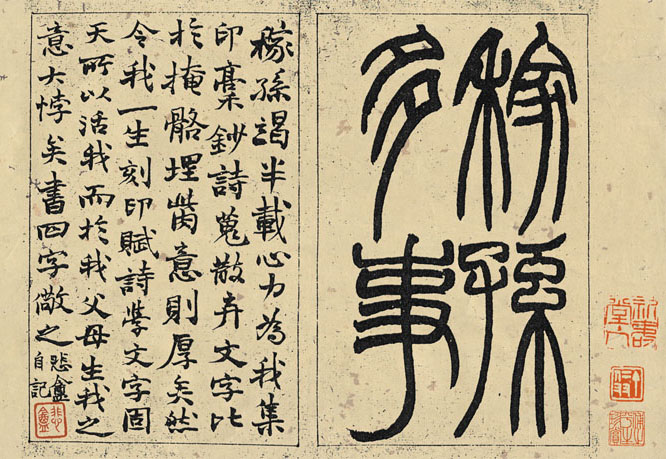 稼孫
多事
稼孫竭半載心力為我集
印稾鈔詩蒐散弃文字比
於掩骼埋胔意則厚矣然
令我一生刻印賦詩學文字固
天所以活我而於我父母生我之
意大悖矣書四字儆之
悲盦
自記
悲盦